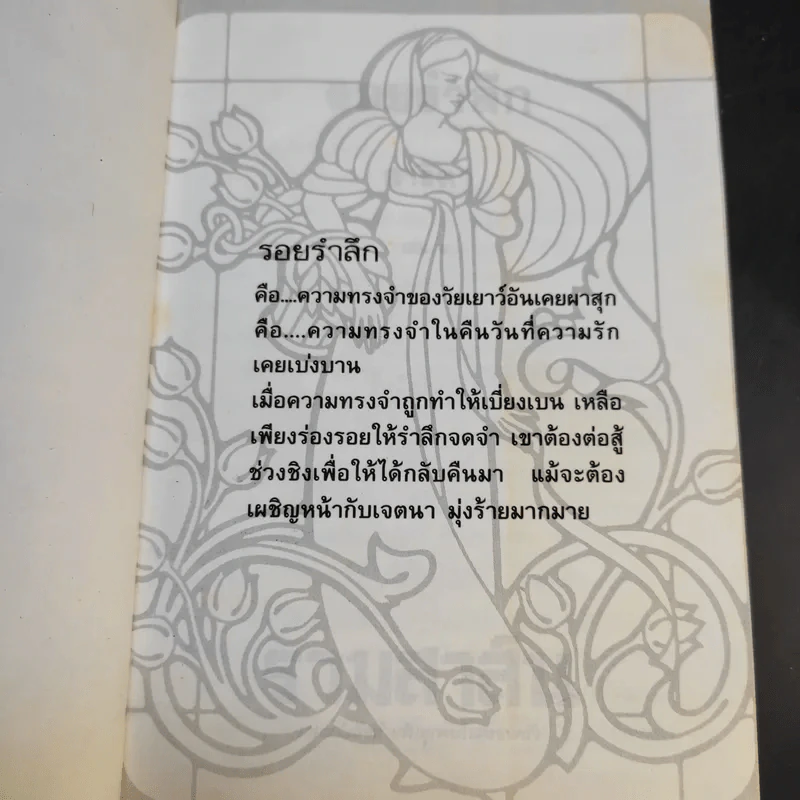 รอยรำลึก
คือ....ความทรงจำของวัยเยาว์อันเคยผาสุก
คือ....ความทรงจำในคืนวันที่ความรัก
เคยเบ่งบาน
เมื่อความทรงจำถูกทำให้เบี่ยงเบน เหลือ
เพียงร่องรอยให้รำลึกจดจำ เขาต้องต่อสู้
ช่วงชิงเพื่อให้ได้กลับคืนมา แม้จะต้อง
เผชิญหน้ากับเจตนา มุ่งร้ายมากมาย